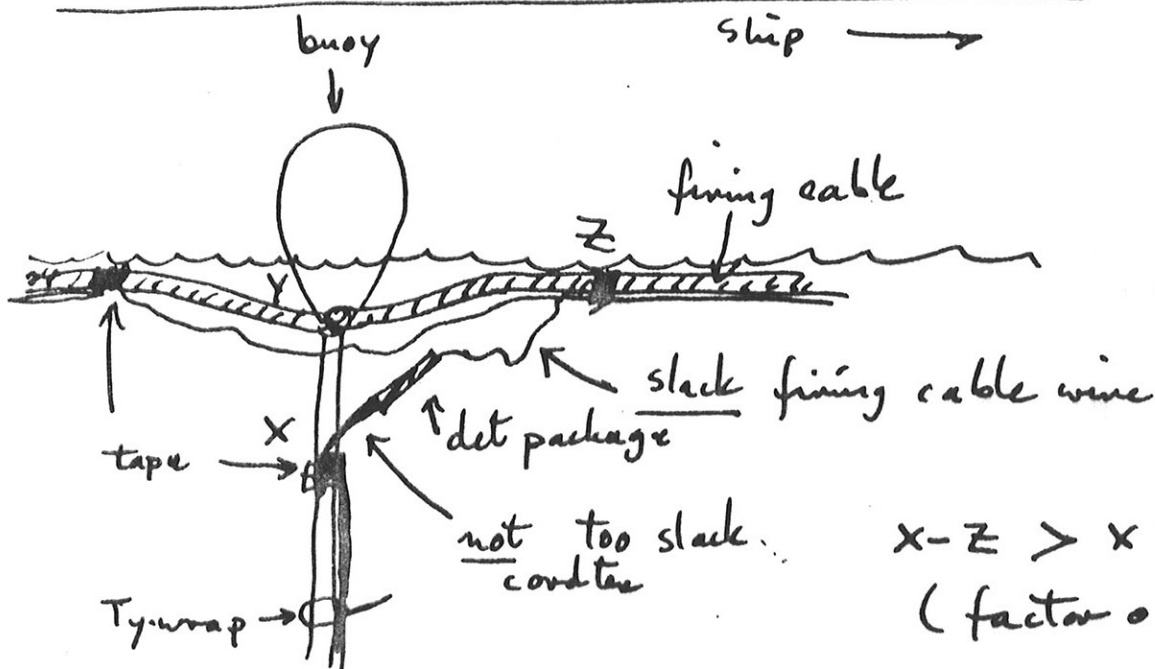 buoy
ship
firing cable
Z
Y
slack firing cable wire
det package
X
tape
not too slack
cordtex
X-Z > X
Ty-wrap
(factor